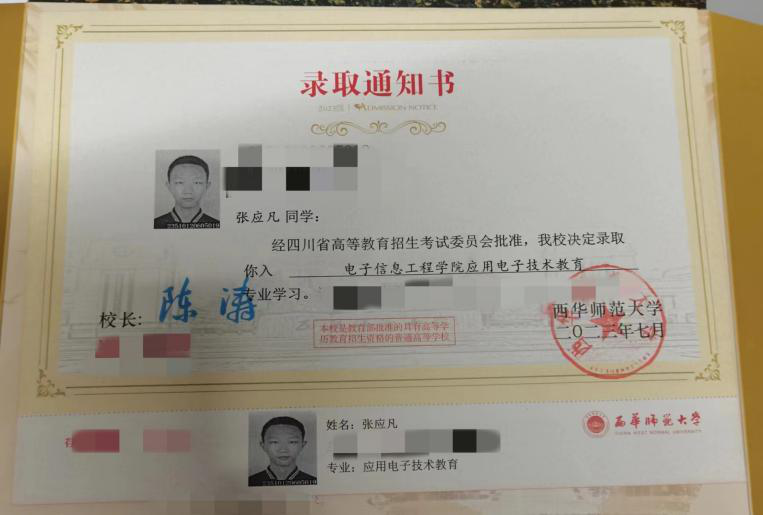 录取通知书
ADMISSION NOTICE
张应凡 同学：
经四川省高等教育招生考试委员会批准，我校决定录取
你入 电子信息工程学院应用电子技术教育
专业学习。
校长：陈涛
本校是教育部批准的具有高等学
历教育招生资格的普通高等学校
西华师范大学
二〇二三年七月
姓名：张应凡
专业：应用电子技术教育
西华师范大学
CHINA WEST NORMAL UNIVERSITY